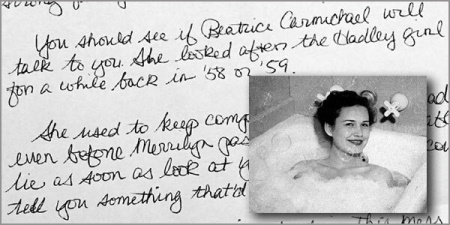 You should see if Beatrice Carmichael will
talk to you. She looked after the Hadley girl
for a while back in '58 or '59.
She used to keep
even before Merrilyn
lie as soon as look at
tell you something that'd
This